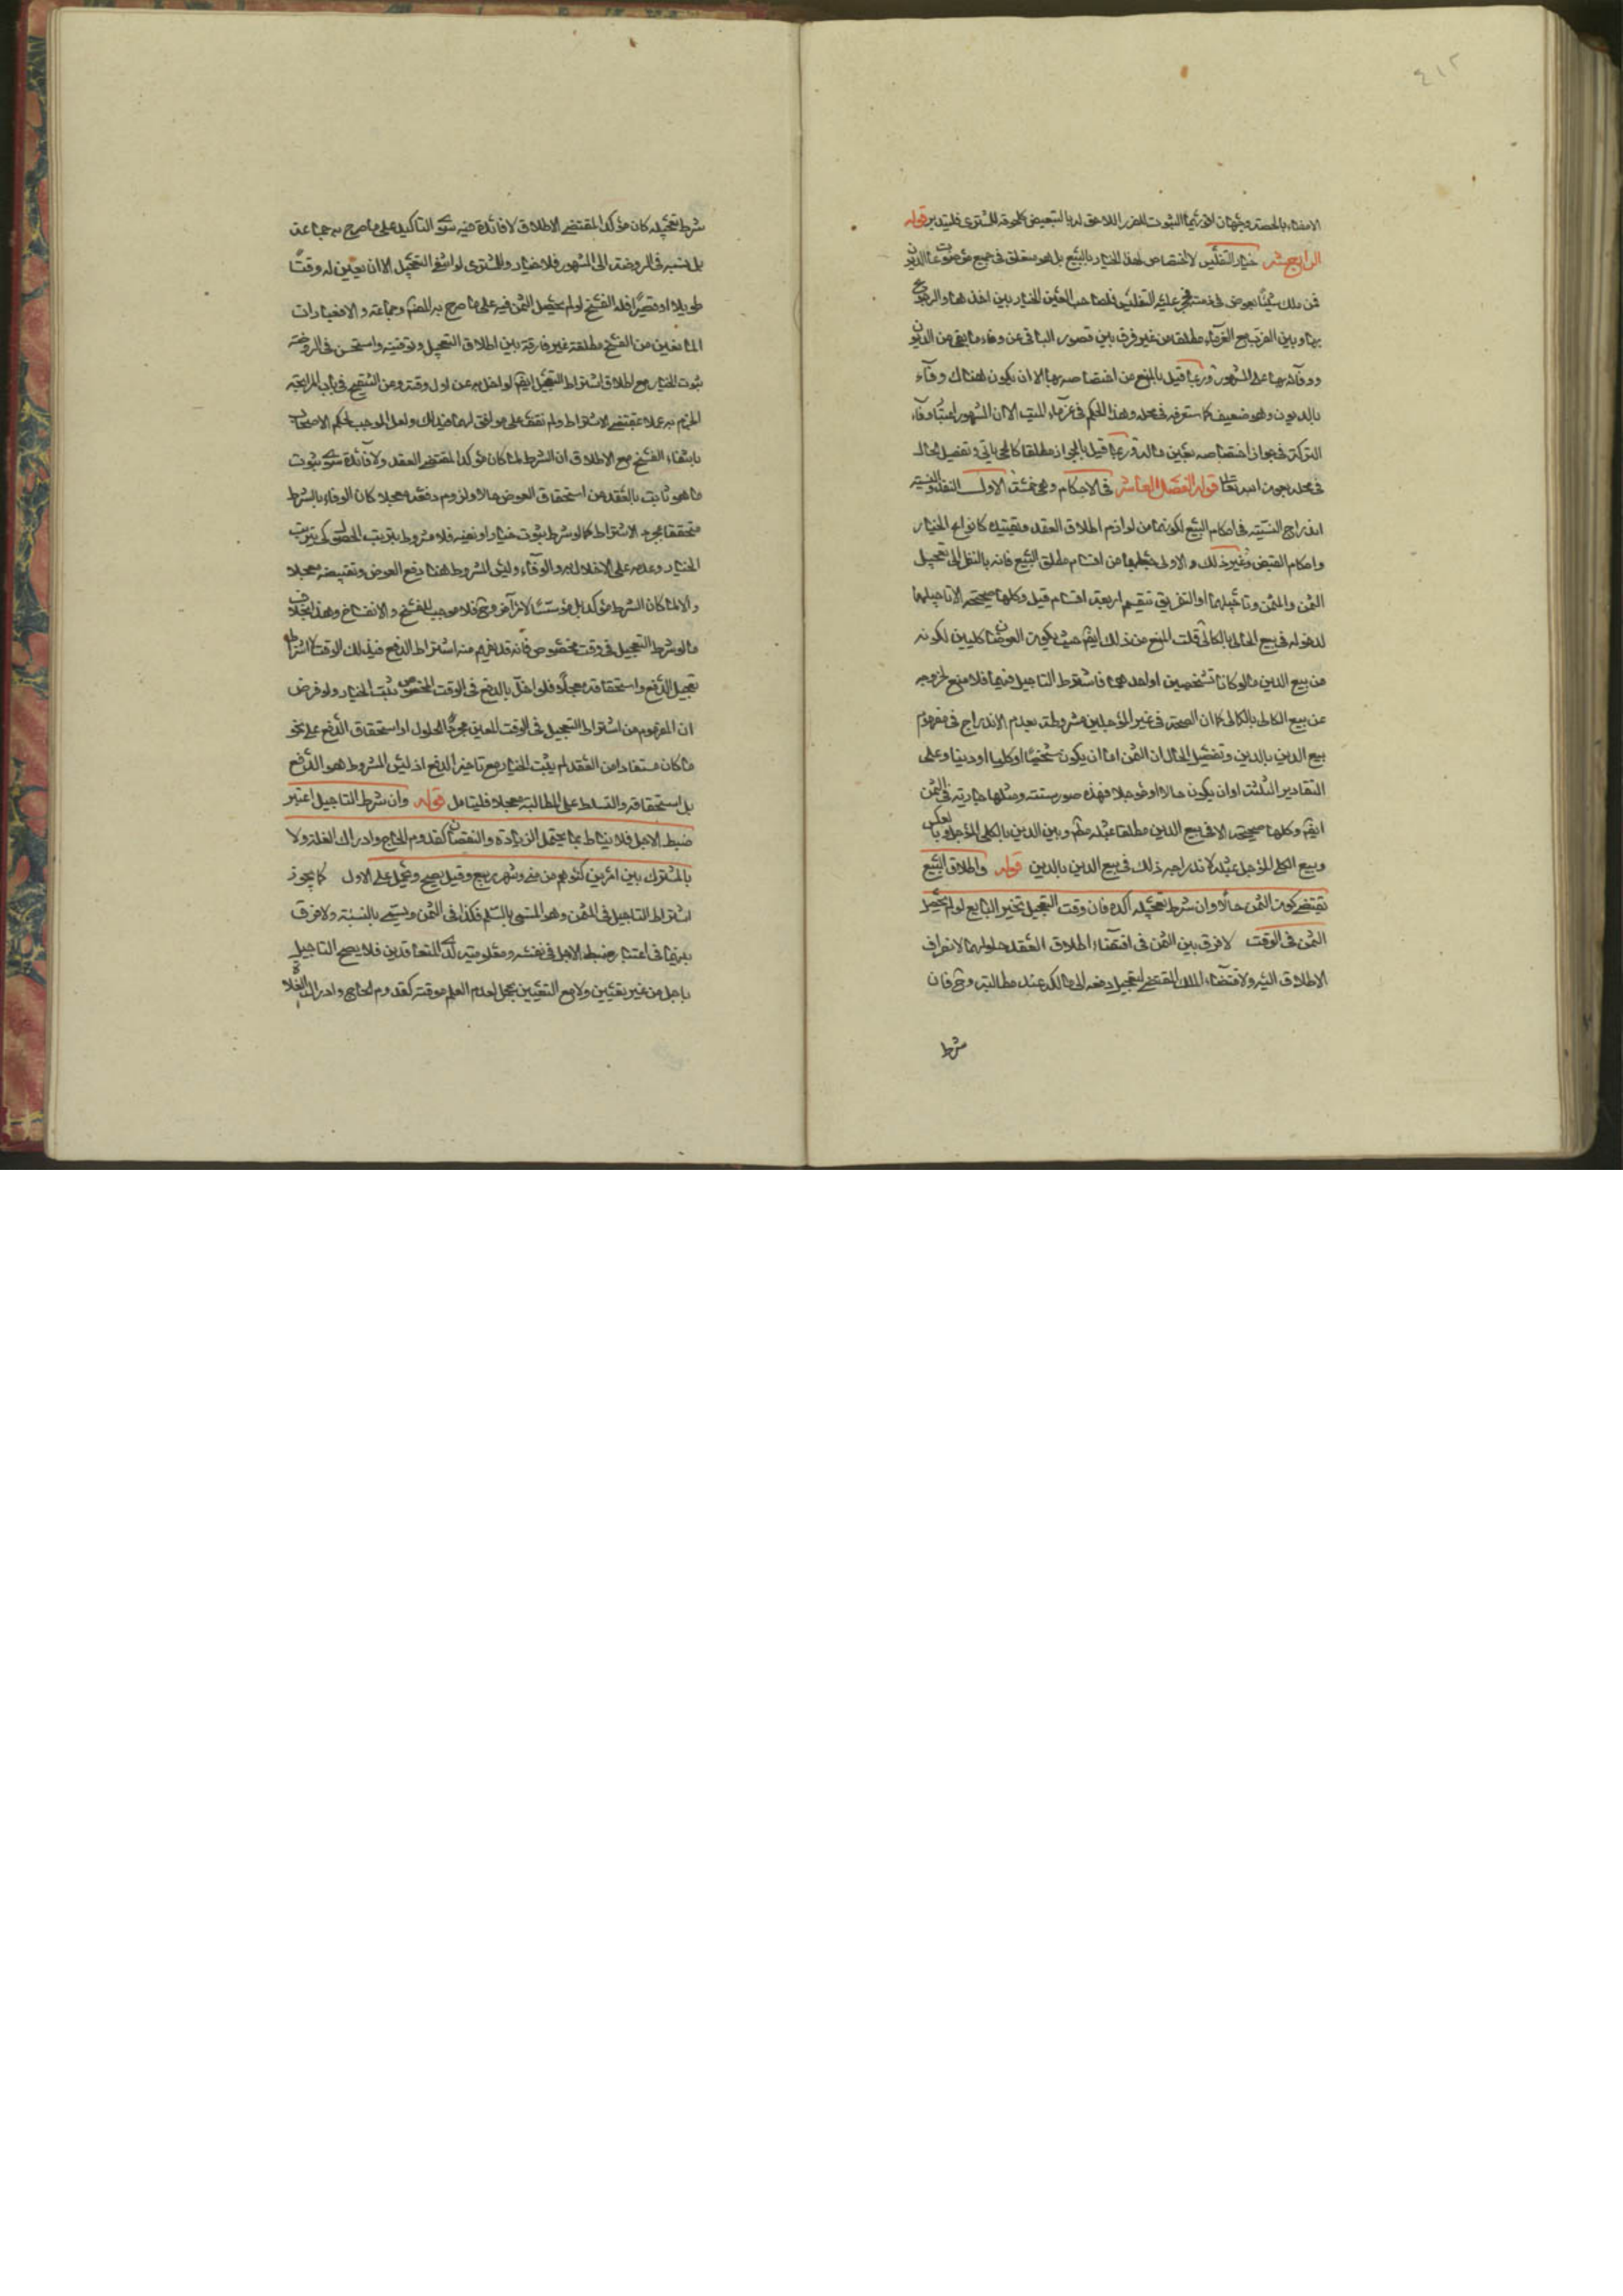 ٤١٢
الامضاء بالحصة وجهان اقربهما الثبوت للضرر اللاحق له بالتبعيض كلحوقه للمشترى فليتدبر قوله
الرابع عشر خيار التفليس لا اختصاص لهذا الخيار بالبيع بل هو متعلق فى جميع الديون
فمن ملك شيئا بعوض فى ذمته فحجر عليه التفليس فلصاحب العين الخيار بين اخذها والرجوع
بها وبين الضرب مع الغرماء مطلقا من غير فرق بين قصور الباقى عن وفاء ما بقى من الديون
ووفائه بها على المشهور وربما قيل بالمنع عن اختصاصه بها الا ان يكون هناك وفاء
بالديون وهو ضعيف كما ستعرفه فى محله وهذا الحكم فى غرماء الميت الا ان المشهور اعتبار وفاء
التركة فى جواز اختصاصه بعين ماله وربما قيل بالجواز مطلقا كالحى ياتى وتفصيل الحال
فى محله بعون الله تعالى قوله الفصل العاشر فى الاحكام وهى خمسة الاول النقد والنسيئة
اندراج النسيئة فى احكام البيع لكونها من لوازم اطلاق العقد وتقييده كانواع الخيار
واحكام القبض وغير ذلك والاولى جعلهما من اقسام مطلق البيع فانه بالنظر الى تعجيل
الثمن والمثمن وتاجيلهما او التفريق تنقسم اربعة اقسام قيل وكلها صحيحة الا تاجيلهما
لدخوله فى بيع الكالى بالكالى قلت المنع من ذلك ايضا حيث يكون العوضان كليين لكونه
من بيع الدين مالو كانا شخصيين او احدهما فاشترط التاجيل فيهما فلا منع لخروجه
عن بيع الكالى بالكالى كما ان الصحة فى غير المؤجلين مشروطة بعدم الاندراج فى مفهوم
بيع الدين بالدين وتفصيل الحال ان الثمن اما ان يكون شخصيا او كليا او دينا وعلى
التقادير الثلثة اوان يكون حالا او مؤجلا فهذه صور ستة ومثلها جارية فى الثمن
ايضا وكلها صحيحة الا فى بيع الدين مطلقا بمثله وبين الدين بالكلى المؤجل وبالعكس
وبيع الكلى المؤجل بمثله لاندراجه ذلك فى بيع الدين بالدين قوله واطلاق البيع
يقتضى كون الثمن حالا وان شرط تعجيله اكده فان وقت التعجيل تخير البايع لو لم يحصل
الثمن فى الوقت لا فرق بين الثمن فى اقتضاء اطلاق العقد حلولهما لانصراف
الاطلاق اليه ولاقتضاء الملك المقتضى لتعجيل دفعه الى مالكه عند مطالبته وح فان
شرط
شرط تعجيله كان مؤكدا لمقتضى الاطلاق لا فائدة فيه سوى التاكيد على ما صرح به جماعة
بل نسبه فى الروضة الى المشهور فلا خيار والمشترى لو انتفى التعجيل الا ان يعين له وقتا
طويلا او قصيرا فله الفسخ لو لم يحصل الثمن فيه على ما صرح به المصنف وجماعة
المانعين من الفسخ مطلقة غير فارقة بين اطلاق التعجيل وتوقيته واستحسن فى الروضة
ثبوت الخيار مع اطلاق اشتراط التعجيل ايضا لو اخل به عن اول وقته وعن التنقيح فى باب المرابحة
الجزم به عملا بمقتضى الاشتراط ولم نقف على موافق لهما فى ذلك ولعل الموجب لحكم الاصحاب
بانتفاء الفسخ مع الاطلاق ان الشرط لما كان مؤكدا لمقتضى العقد ولا فائدة سوى ثبوت
ما هو ثابت بالعقد من استحقاق العوض حالا ولزوم دفعه معجلا كان الوفاء بالشرط
متحققا بمجرد الاشتراط كما لو شرط ثبوت خيار او نفيه فلا مشروط يترتب
الخيار وعدمه على الاخلال به والوفاء وليس المشروط هنا دفع العوض وتقبيضه معجلا
والا لما كان الشرط مؤكدا بل مؤسسا لامر آخر وح فلا موجب للفسخ والانفساخ وهذا بخلاف
مالو شرط التعجيل فى وقت مخصوص فانه قد يفهم منه اشتراط الدفع فى ذلك الوقت لا اشتراط
تعجيل الدفع واستحقاقه معجلا فلو اخل بالدفع فى الوقت المخصوص ثبت الخيار ولو فرض
ان المفهوم من اشتراط التعجيل فى الوقت المعين مجرد الحلول او استحقاق الدفع على نحو
ما كان مستفادا من العقد لم يثبت الخيار مع تاخير الدفع اذ ليس المشروط هو الدفع
بل استحقاقه والتسلط على المطالبة معجلا فليتامل قوله وان شرط التاجيل اعتبر
ضبط الاجل فلا يناط بما يحتمل الزيادة والنقصان كقدوم الحاج وادراك الغلة ولا
بالمشترك بين امرين كنفرهم من منى وشهر ربيع وقيل يصح ويحمل على الاول كما يجوز
اشتراط التاجيل فى المثمن وهو المسمى بالسلم فكذا فى الثمن ويسمى بالنسيئة ولا فرق
بينهما فى اعتبار ضبط الاجل فى نفسه ومعلوميته لدى المتعاقدين فلا يصح التاجيل
باجل من غير تعيين ولا مع التعيين بمجمل لعدم العلم موقته كقدوم الحاج وادراك الغلاة